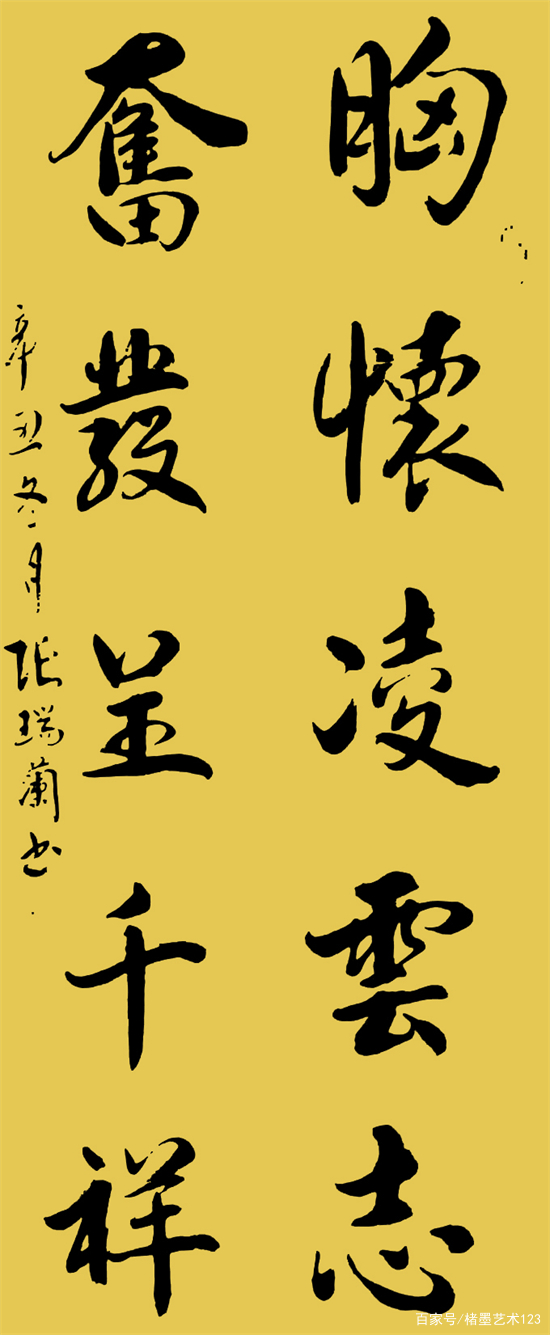 胸懷凌雲志
奮發呈千祥
辛丑冬月張瑞蘭书
百家号/楮墨艺术123